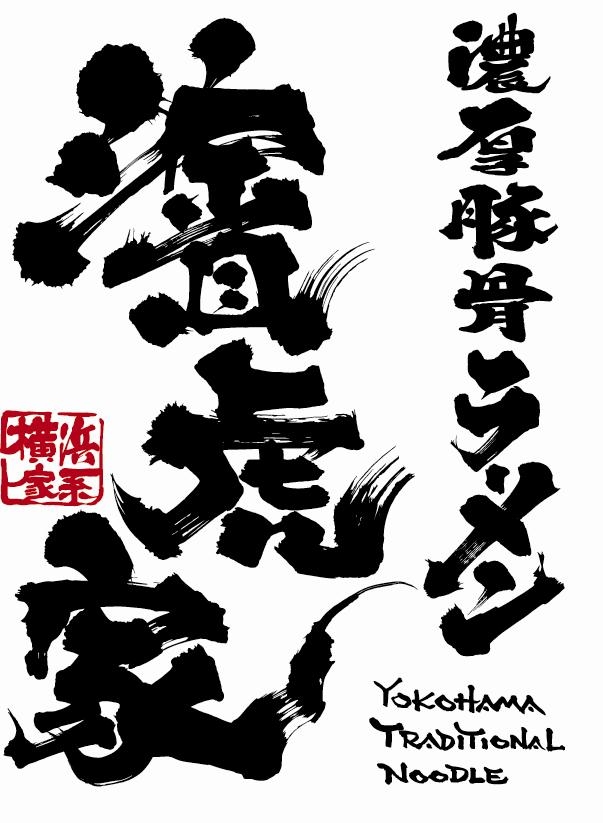 濃厚豚骨ラーメン
濱虎家
横浜
家系
YOKOHAMA
TRADITIONAL
NOODLE